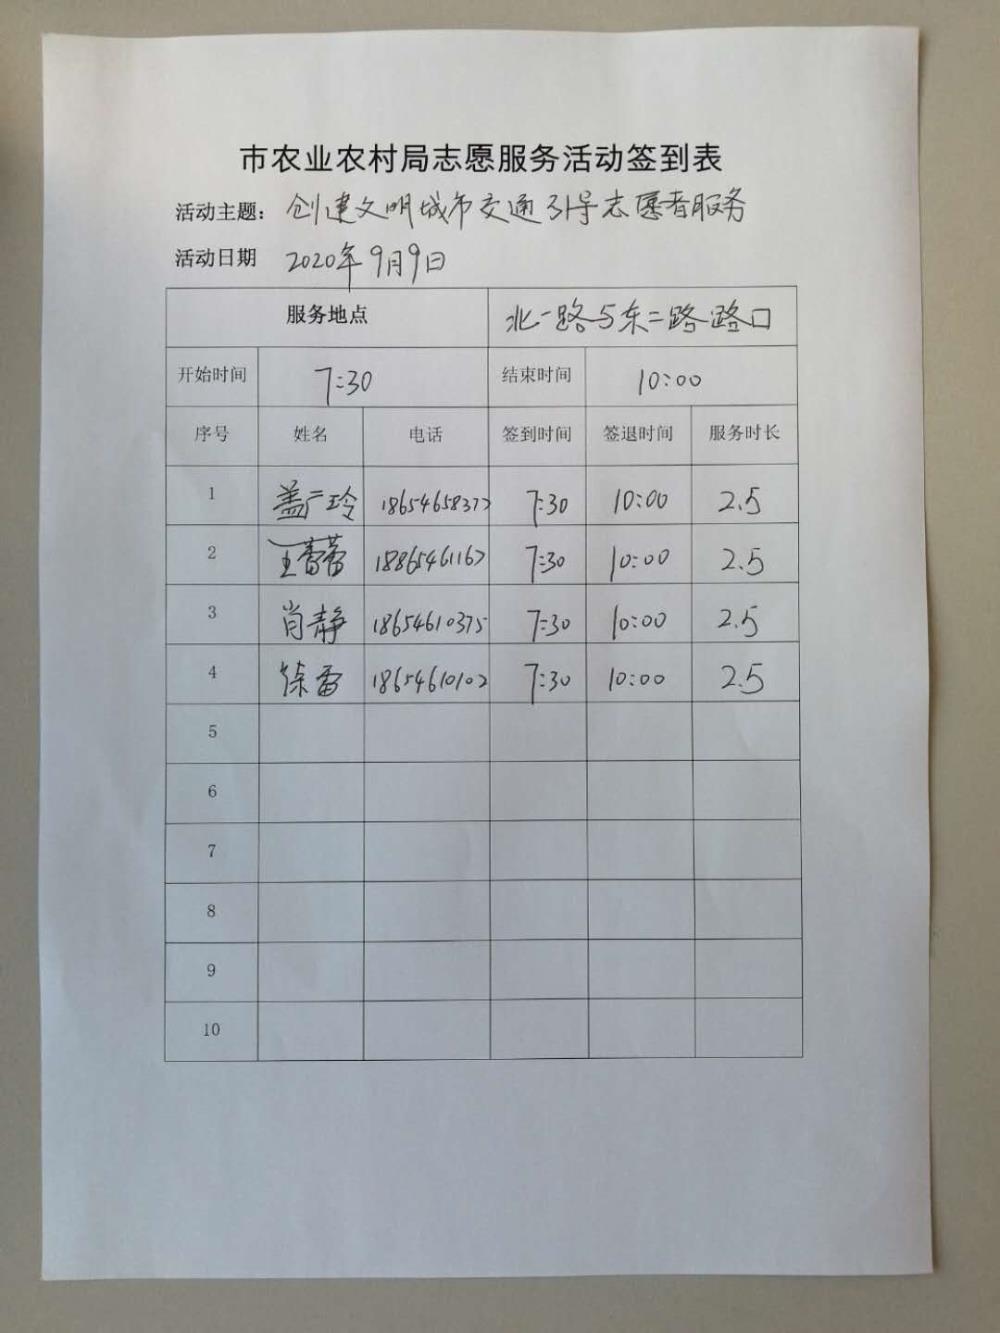 市农业农村局志愿服务活动签到表
活动主题：创建文明城市交通引导志愿者服务
活动日期 2020年9月9日
服务地点 北一路与东二路路口
开始时间 7:30 结束时间 10:00
序号 姓名 电话 签到时间 签退时间 服务时长
1 盖广玲 18654658377 7:30 10:00 2.5
2 王蕾蕾 18865461167 7:30 10:00 2.5
3 肖静 18654610375 7:30 10:00 2.5
4 徐雷 18654610102 7:30 10:00 2.5
5
6
7
8
9
10